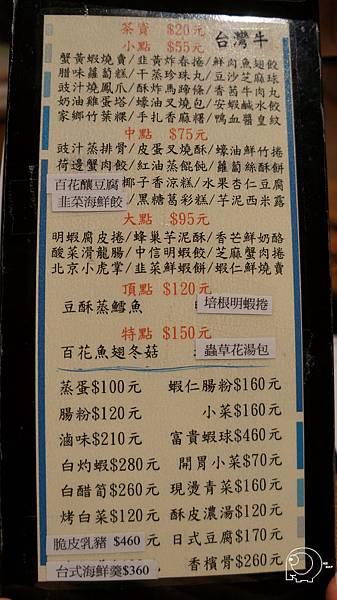 茶資 $20元
小點 $55元
台灣牛
蟹黃蝦燒賣/韭黃炸春捲/鮮肉魚翅餃
腊味蘿蔔糕/干蒸珍珠丸/豆沙芝麻球
豉汁燒鳳爪/酥炸馬蹄條/香茜牛肉丸
奶油雞蛋塔/蠔油叉燒包/安蝦鹹水餃
家鄉竹葉粿/手扎香麻糬/鴨血醬皇紋
中點 $75元
豉汁蒸排骨/皮蛋叉燒酥/蠔油鮮竹捲
荷邊蟹肉餃/紅油蒸餛飩/蘿蔔絲酥餅
百花釀豆腐 椰子香涼糕/水果杏仁豆腐
韭菜海鮮餃 /黑糖葛彩糕/芋泥西米露
大點 $95元
明蝦腐皮捲/蜂巢芋泥酥/香芒鮮奶酪
酸菜滑龍腸/中信明蝦餃/芝麻蟹肉捲
北京小虎掌/韭菜鮮蝦餅/蝦仁鮮燒賣
頂點 $120元
豆酥蒸鱈魚
培根明蝦捲
特點 $150元
百花魚翅冬菇
蟲草花湯包
蒸蛋$100元 蝦仁腸粉$160元
腸粉$120元 小菜$160元
滷味$210元 富貴蝦球$460元
白灼蝦$280元 開胃小菜$70元
白醋筍$260元 現燙青菜$160元
烤白菜$120元 酥皮濃湯$120元
脆皮乳豬 $460元 日式豆腐$170元
台式海鮮羹$360 香檳骨$260元